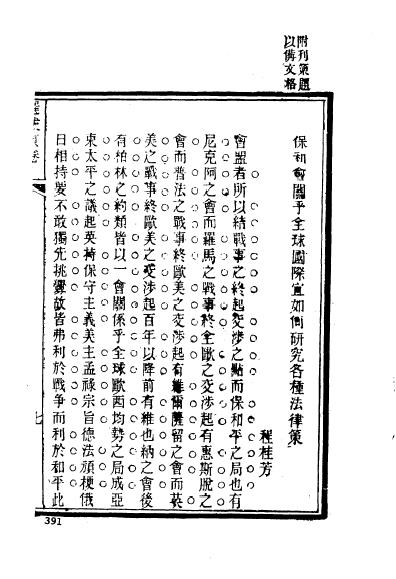 附刊策題
以備文格
保和會關乎全球國際宜如何研究各種法律策
程桂芳
會盟者所以結戰事之終起交涉之點而保和平之局也有
尼克阿之會而羅馬之戰事終全歐之交涉起有惠斯脫之
會而普法之戰事終歐美之交涉起有維爾薩留之會而英
美之戰事終歐美之交涉起百年以降前有維也納之會後
有柏林之約類皆以一會關係乎全球歐西均勢之局成亞
東太平之議起英持保守主義美主孟祿宗旨德法頑梗俄
日相持要不敢獨先挑釁故皆弗利於戰爭而利於和平此
七
391